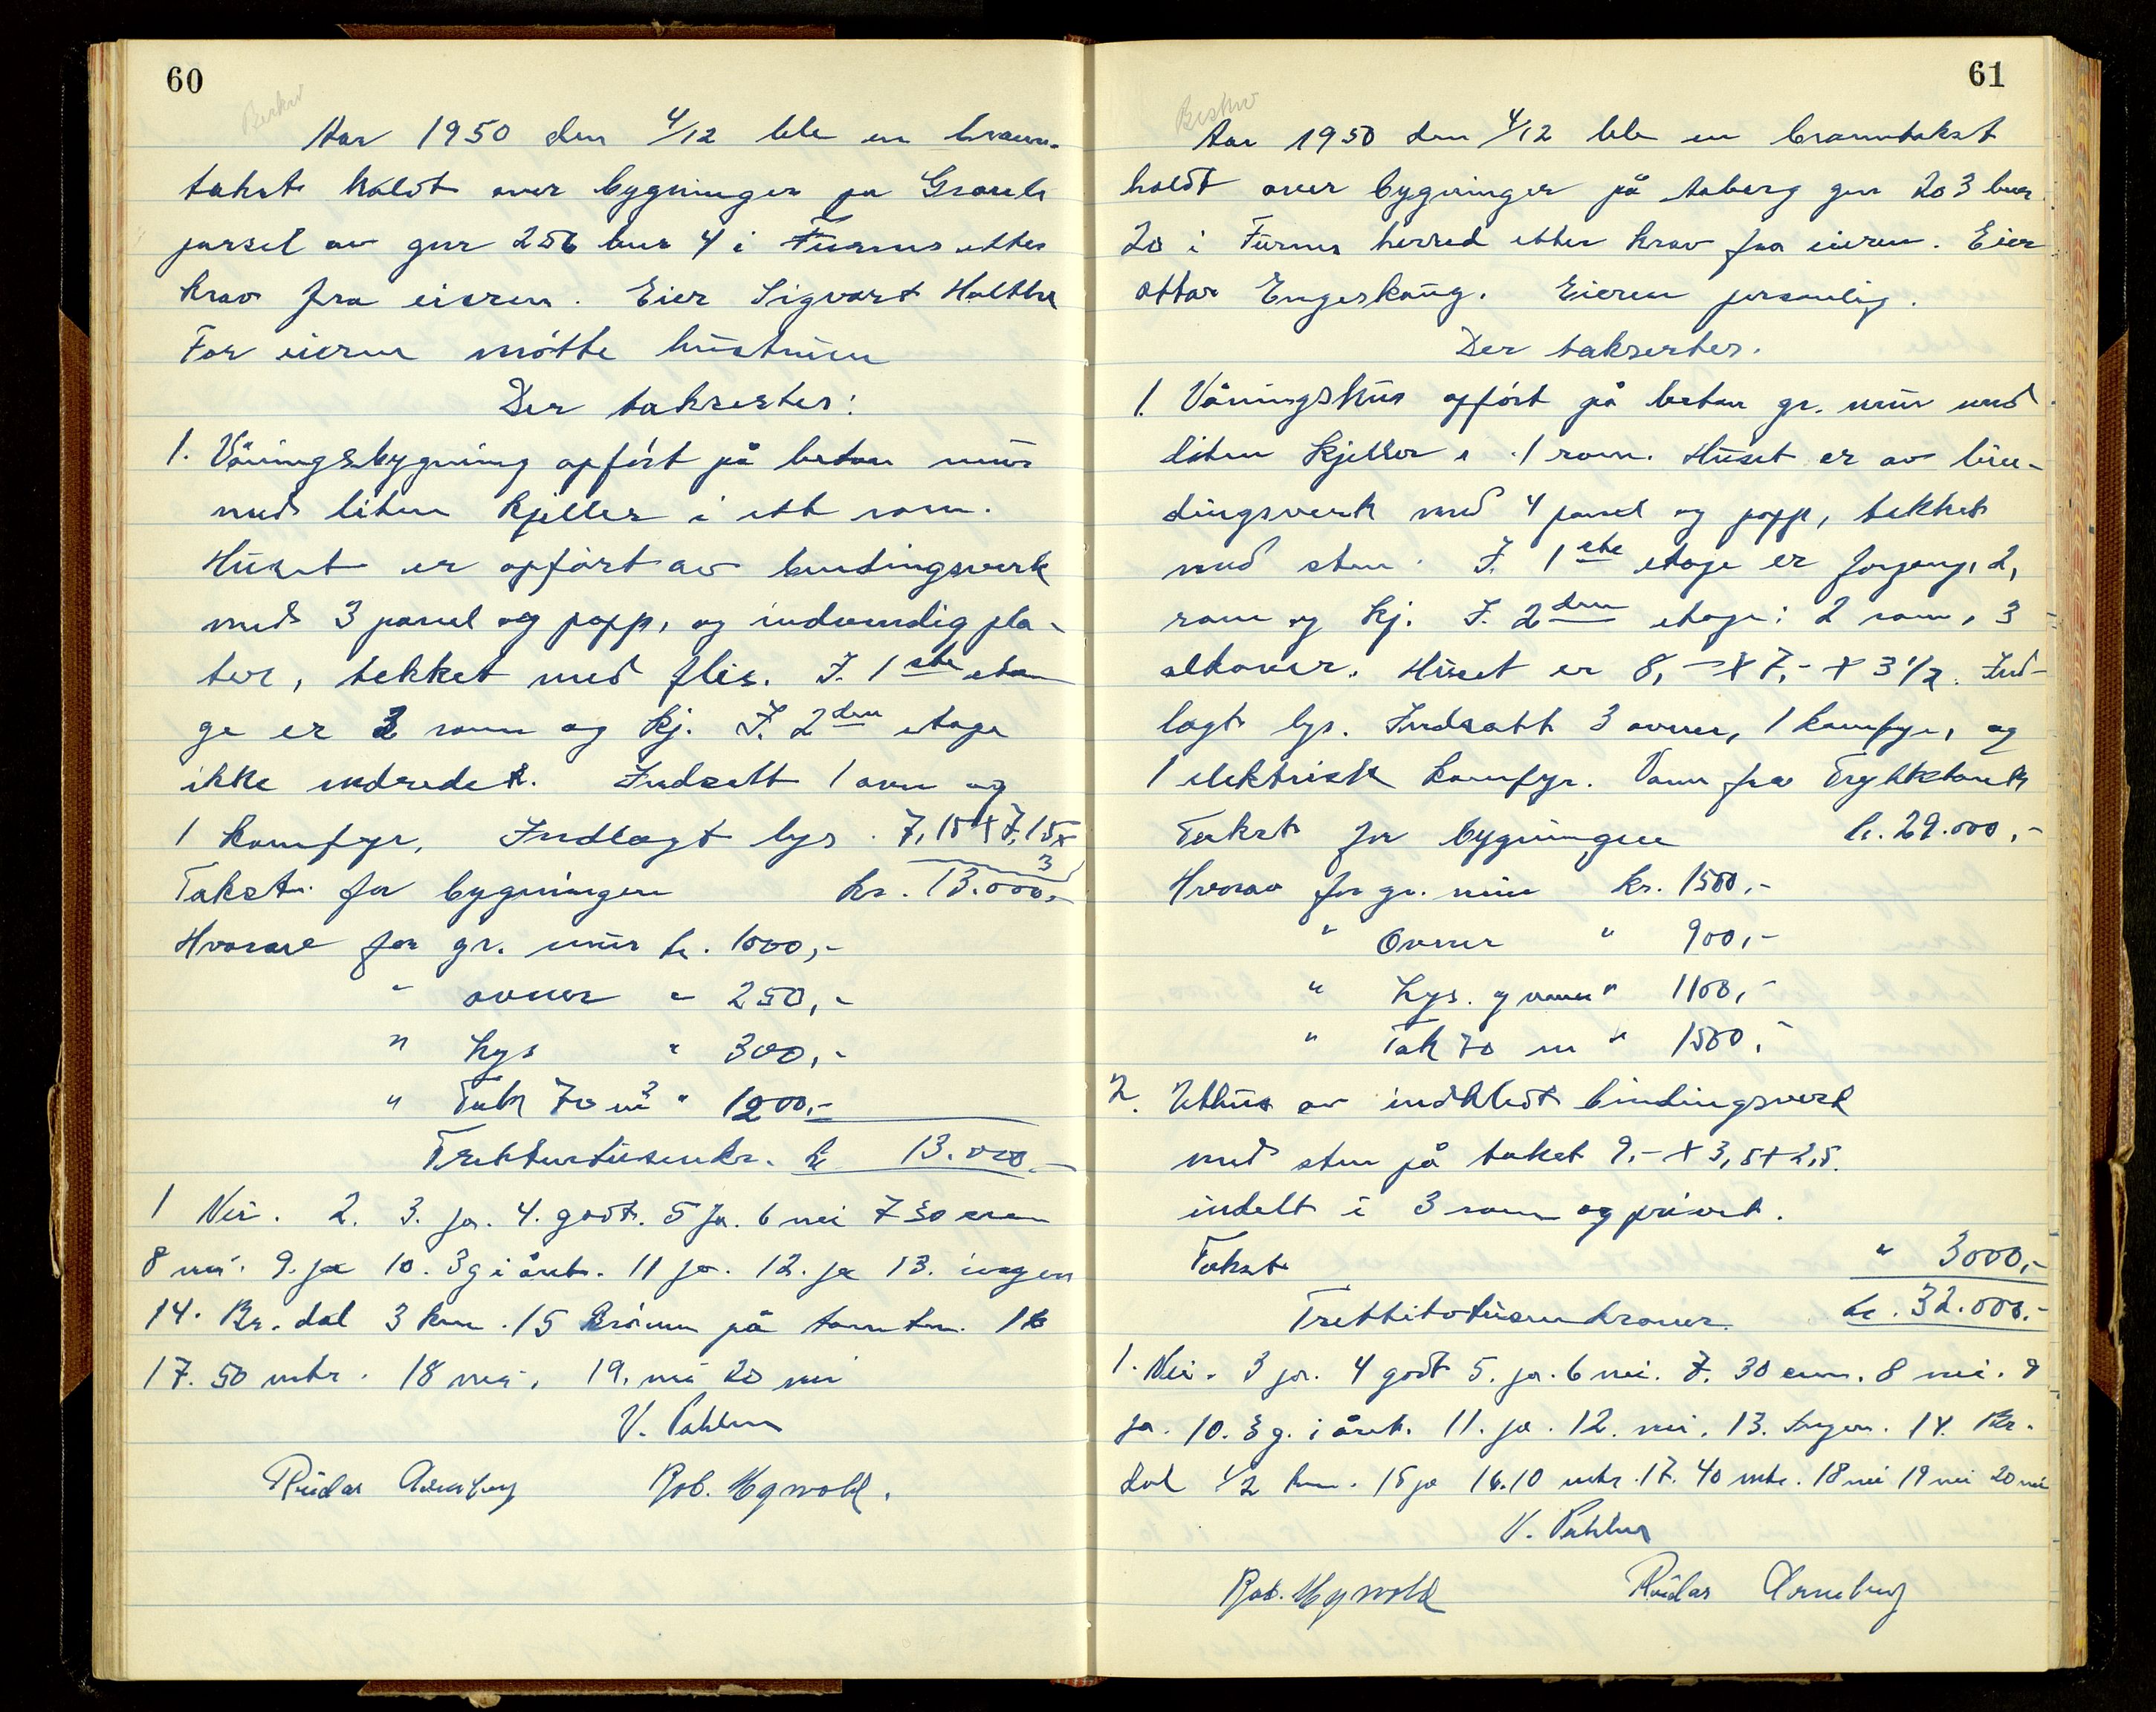 60
Aar 1950 den 4/12 ble en brann-
takst holdt over bygninger på Granli
parsel av gnr 256 bnr 4 i Furnes etter
krav fra eieren. Eier Sigvart Holther
For eieren møtte hustruen
Der taksertes:
1. Våningsbygning opført på beton mur
med liten kjeller i ett rom.
Huset er opført av bindingsverk
med 3 panel og papp, og indvendig pla-
ter, tekket med flis. I. 1ste eta-
ge er 2 rom og kj. I. 2den etage
ikke indredet. Indsatt 1 ovn og
1 komfyr, Indlagt lys. 7,15 x 7,15 x
3
Takst for bygningen kr. 13.000,-
Hvorav for gr. mur kr. 1000,-
" ovner " 250,-
" Lys " 300,-
" Tak 70 m2 " 1200,-
Trettentusenkr. kr 13.000.-
1 Nei. 2. 3. ja. 4. godt. 5 ja. 6 nei 7 30 cm
8 nei. 9. ja 10. 3 g i året. 11 ja. 12. ja 13. ingen
14. Br.dal 3 km. 15 Brønn på tomten. 16
17. 50 mtr. 18 nei, 19. nei 20 nei
V. Pahlen
Reidar Arneberg Rob. Mygvold.
61
Aar 1950 den 4/12 ble en branntakst
holdt over bygninger på Aaberg gnr 203 bnr
20 i Furnes herred etter krav fra eieren. Eier
Ottar Engeskaug. Eieren personlig.
Der taksertes.
1. Våningshus opført på beton gr. mur med
liten kjeller i 1 rom. Huset er av bin-
dingsverk med 4 panel og papp, tekket
med sten. I. 1ste etage er forgang, 2,
rom og kj. I. 2den etage: 2 rom, 3
alkover. Huset er 8,- x 7,- x 3 1/2. Ind-
lagt lys. Indsatt 3 ovner, 1 komfyr, og
1 elektrisk komfyr. Vann fra Trykktank
Takst for bygningen kr. 29.000,-
Hvorav for gr. mur kr. 1500,-
" Ovner " 900,-
" Lys. og vann " 1100,-
" Tak 70 m " 1500,-
2. Uthus av indkledt bindingsverk
med sten på taket 9,- x 3,5 x 2,5.
indelt i 3 rom og privet.
Takst " 3000,-
Trettitotusenkroner. kr. 32.000.-
1. Nei. 3 ja. 4 godt 5. ja. 6 nei. 7. 30 cm. 8 nei. 9
ja. 10. 3 g. i året. 11. ja. 12. nei. 13. Ingen. 14. Br.
dal 1/2 km. 15 ja 16. 10 mtr. 17. 40 mtr. 18 nei 19 nei 20 nei
V. Pahlen
Rob. Mygvold Reidar Arneberg